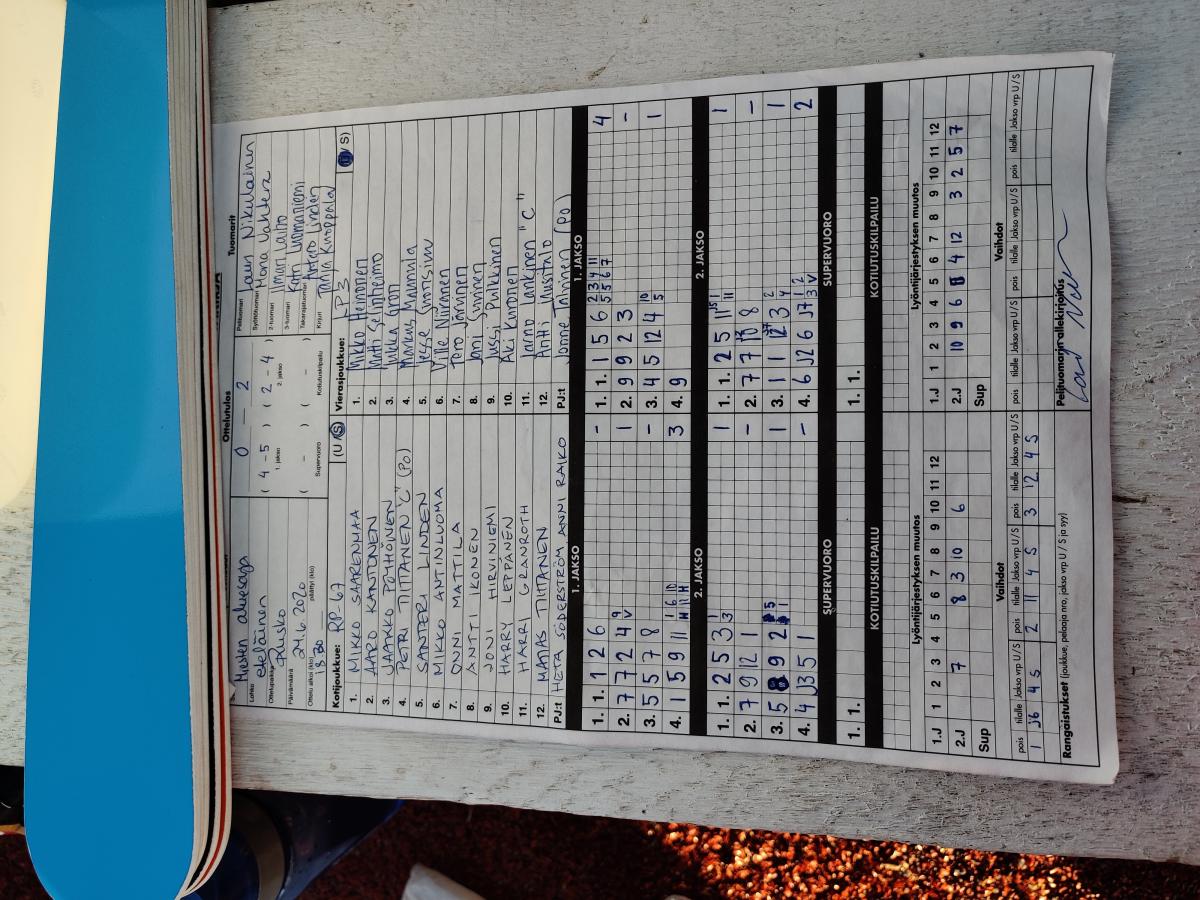 Ottelutulos
Tuomarit
Miesten aluesarja
Lohko
eteläinen
0 – 2
Ottelupaikka
Rusko
Päivämäärä
24.6.2020
Ottelu alkoi (klo) päättyi (klo)
18.30
( 4 – 5 ) ( 2 – 4 )
1. jakso 2. jakso
( – ) ( – )
Supervuoro Kotiutuskilpailu
Pelituomari Lauri Nikulainen
Syöttötuomari Mona Vahtera
2-tuomari Ilmari Laitio
3-tuomari Kati Luomaniemi
Takarajatuomari Antero Linden
Kirjuri Tanja Knoppala
Kotijoukkue: RP-67 (U / S)
1. MIKKO SAARENMAA
2. AARO KANTONEN
3. JAAKKO PÖYHÖNEN
4. PETRI TIITTANEN "C" (PO)
5. SANTERI LINDEN
6. MIKKO ANTINLUOMA
7. ONNI MATTILA
8. ANTTI IKONEN
9. JONI HIRVINIEMI
10. HARRY LEPPÄNEN
11. HARRI GRANROTH
12. MATIAS TIITTANEN
PJ:t HETA SÖDERSTRÖM ANNI RAIKO
Vierasjoukkue: LP3 (U / S)
1. Mikko Heinonen
2. Matti Seinheimo
3. Jukka Grön
4. Markus Mannula
5. Jesse
6. Ville Niiranen
7. Tero Järvinen
8. Jani Sinnen
9. Jussi Pulkkinen
10. Aki Kuronen
11. Jarno Lankinen "C"
12. Antti Uusitalo
PJ:t Jonne Tahvinen (PO)
1. JAKSO
1. 1. 1 2 6 –
2. 7 7 2 4 9 V 1
3. 5 5 7 8 –
4. 1 5 9 11 3
1. JAKSO
1. 1. 1 5 6 2 3 4 11 5 5 6 7 4
2. 9 9 2 3 –
3. 4 5 12 4 10 5 1
4. 9
2. JAKSO
1. 1. 2 5 3 1 3 1
2. 7 9 12 1 –
3. 5 9 2 1
4. 4 J3 5 1 –
2. JAKSO
1. 1. 2 5 11 1
2. 7 7 10 8 –
3. 1 1 12 3 2 4 1
4. 6 J2 6 J7 1 2 3 V 2
SUPERVUORO
1. 1.
SUPERVUORO
1. 1.
KOTIUTUSKILPAILU
KOTIUTUSKILPAILU
Lyöntijärjestyksen muutos
1.J 1 2 3 4 5 6 7 8 9 10 11 12
2.J 7 8 3 10 6
Sup
Lyöntijärjestyksen muutos
1.J 1 2 3 4 5 6 7 8 9 10 11 12
2.J 10 9 6 4 12 3 2 5 7
Sup
Vaihdot
pois tilalle Jakso vrp U / S pois tilalle Jakso vrp U / S pois tilalle Jakso vrp U / S
1 J6 4 S 2 11 4 S 3 12 4 S
Vaihdot
pois tilalle Jakso vrp U / S pois tilalle Jakso vrp U / S pois tilalle Jakso vrp U / S
Rangaistukset (joukkue, pelaaja nro, jakso vrp U / S ja syy)
Pelituomarin allekirjoitus